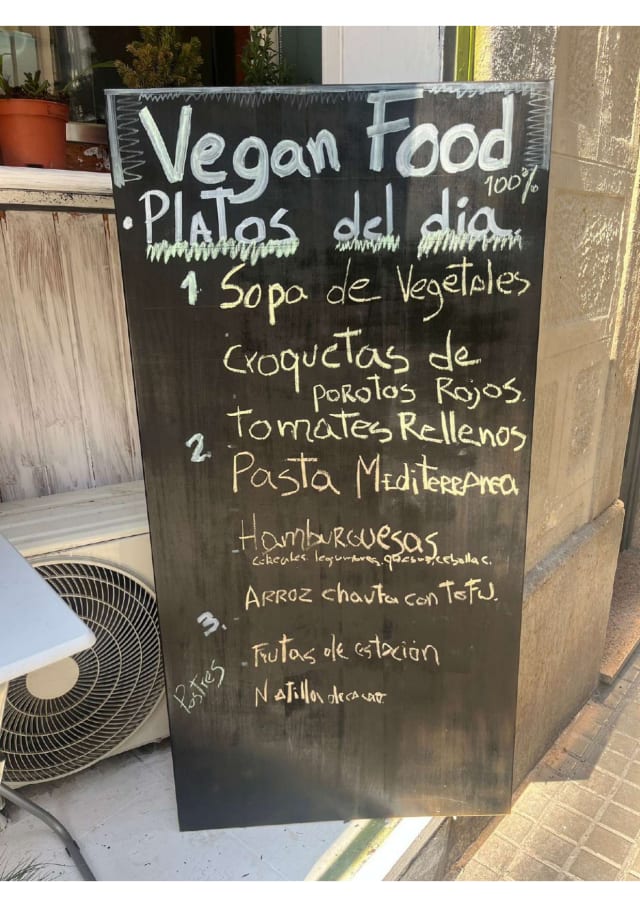 Vegan Food
100%
• Platos del dia.
1 Sopa de Vegetales
Croquetas de
Porotos Rojos.
Tomates Rellenos
2. Pasta Mediterranea
Hamburguesas
cereales. legumbres, quesos, cebollas.
Arroz chaufa con Tofu.
3.
Frutas de estación
Postres
Natillas de cacao